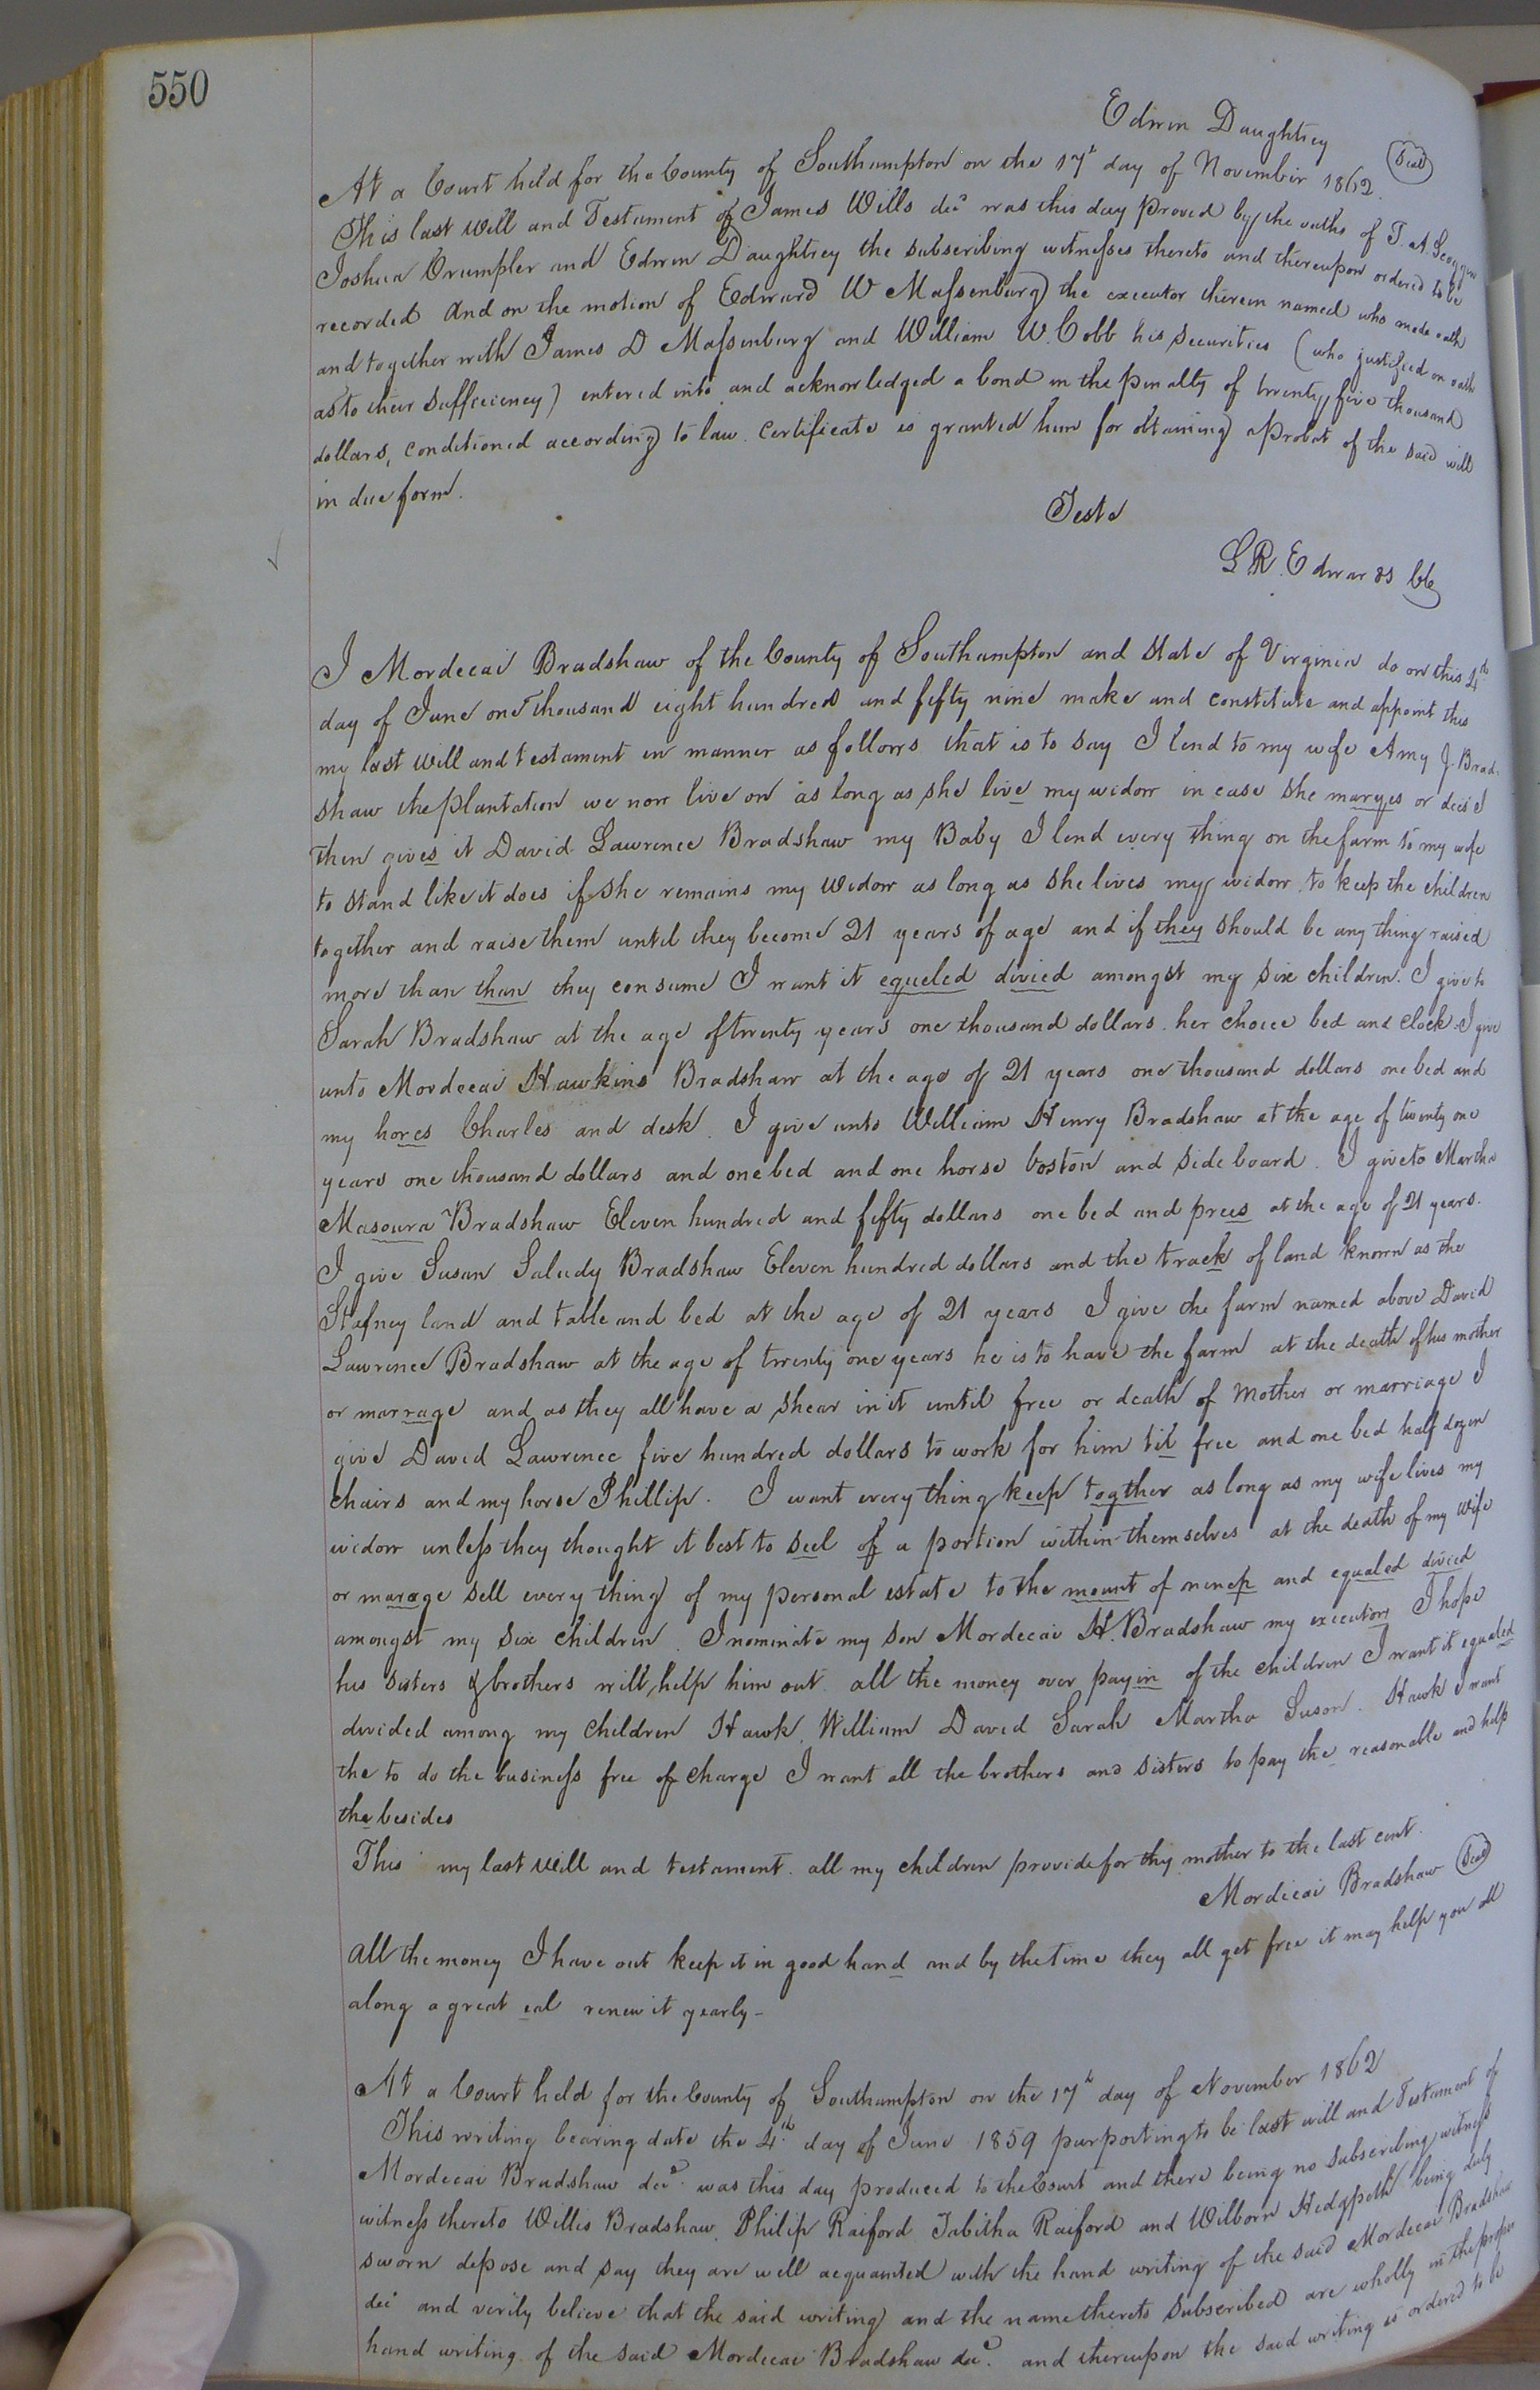 550
Edwin Daughtrey (Seal)
At a Court held for the County of Southampton on the 17th day of November 1862.
This last Will and Testament of James Wills decd was this day proved by the oaths of T. A. Scoggin
Joshua Crumpler and Edwin Daughtrey the subscribing witnesses thereto and thereupon ordered to be
recorded And on the motion of Edward W Massenburg the executor therein named who made oath
and together with James D Massenburg and William W. Cobb his securities (who justified on oath
as to their sufficiency) entered into and acknowledged a bond in the penalty of twenty five thousand
dollars, conditioned according to law. Certificate is granted him for obtaining a Probat of the said will
in due form.
Teste
L R. Edwards Clk
I Mordecai Bradshaw of the County of Southampton and State of Virginia do on this 4th
day of June one Thousand eight hundred and fifty nine make and constitute and appoint this
my last will and testament in manner as follows that is to say I lend to my wife Amy J. Brad-
shaw the plantation we now live on as long as she live my widow in case she maryes or dies I
then gives it David Lawrence Bradshaw my Baby I lend every thing on the farm to my wife
to stand like it does if she remains my widow as long as she lives my widow to keep the children
together and raise them until they become 21 years of age and if they should be any thing raised
more than than they consume I want it equeled divied amongst my six children. I give to
Sarah Bradshaw at the age of twenty years one thousand dollars her choice bed and clock. I give
unto Mordecai Hawkins Bradshaw at the age of 21 years one thousand dollars one bed and
my hores Charles and desk. I give unto William Henry Bradshaw at the age of twenty one
years one thousand dollars and one bed and one horse boston and side board. I give to Martha
Masoura Bradshaw Eleven hundred and fifty dollars one bed and prees at the age of 21 years.
I give Susan Saludy Bradshaw Eleven hundred dollars and the track of land known as the
Stafney land and table and bed at the age of 21 years I give the farm named above David
Lawrence Bradshaw at the age of twenty one years he is to have the farm at the death of his mother
or marrage and as they all have a shear in it until free or death of mother or marriage I
give David Lawrence five hundred dollars to work for him til free and one bed half dozen
chairs and my horse Phillip. I want every thing keep togther as long as my wife lives my
widow unless they thought it best to seel of a portion within themselves at the death of my wife
or marage sell every thing of my personal estate to the mount of and equaled divied
amongst my six children. I nominate my son Mordecai H. Bradshaw my executory I hope
his sisters & brothers will help him out. all the money over payin of the children I want it equaled
divided among my children Hawk, William David Sarah Martha Suson. Hawk I want
the to do the business free of charge I want all the brothers and sisters to pay the reasonable and help
the besides
This my last will and testament. all my children provide for thy mother to the last cent.
Mordicai Bradshaw (Seal)
all the money I have out keep it in good hand and by the time they all get free it may help you all
along a great eal renew it yearly-
At a Court held for the County of Southampton on the 17th day of November 1862
This writing bearing date the 4th day of June 1859 purporting to be last will and Testament of
Mordecai Bradshaw decd was this day produced to the Court and there being no subscribing witness
witness thereto Willis Bradshaw, Philip Raiford Tabitha Raiford and Wilborn Hedgpeth being duly
sworn depose and say they are well acquainted with the hand writing of the said Mordecai Bradshaw
decd and verily believe that the said writing and the name thereto subscribed are wholly in the proper
hand writing of the said Mordecai Bradshaw decd. and thereupon the said writing is ordered to be